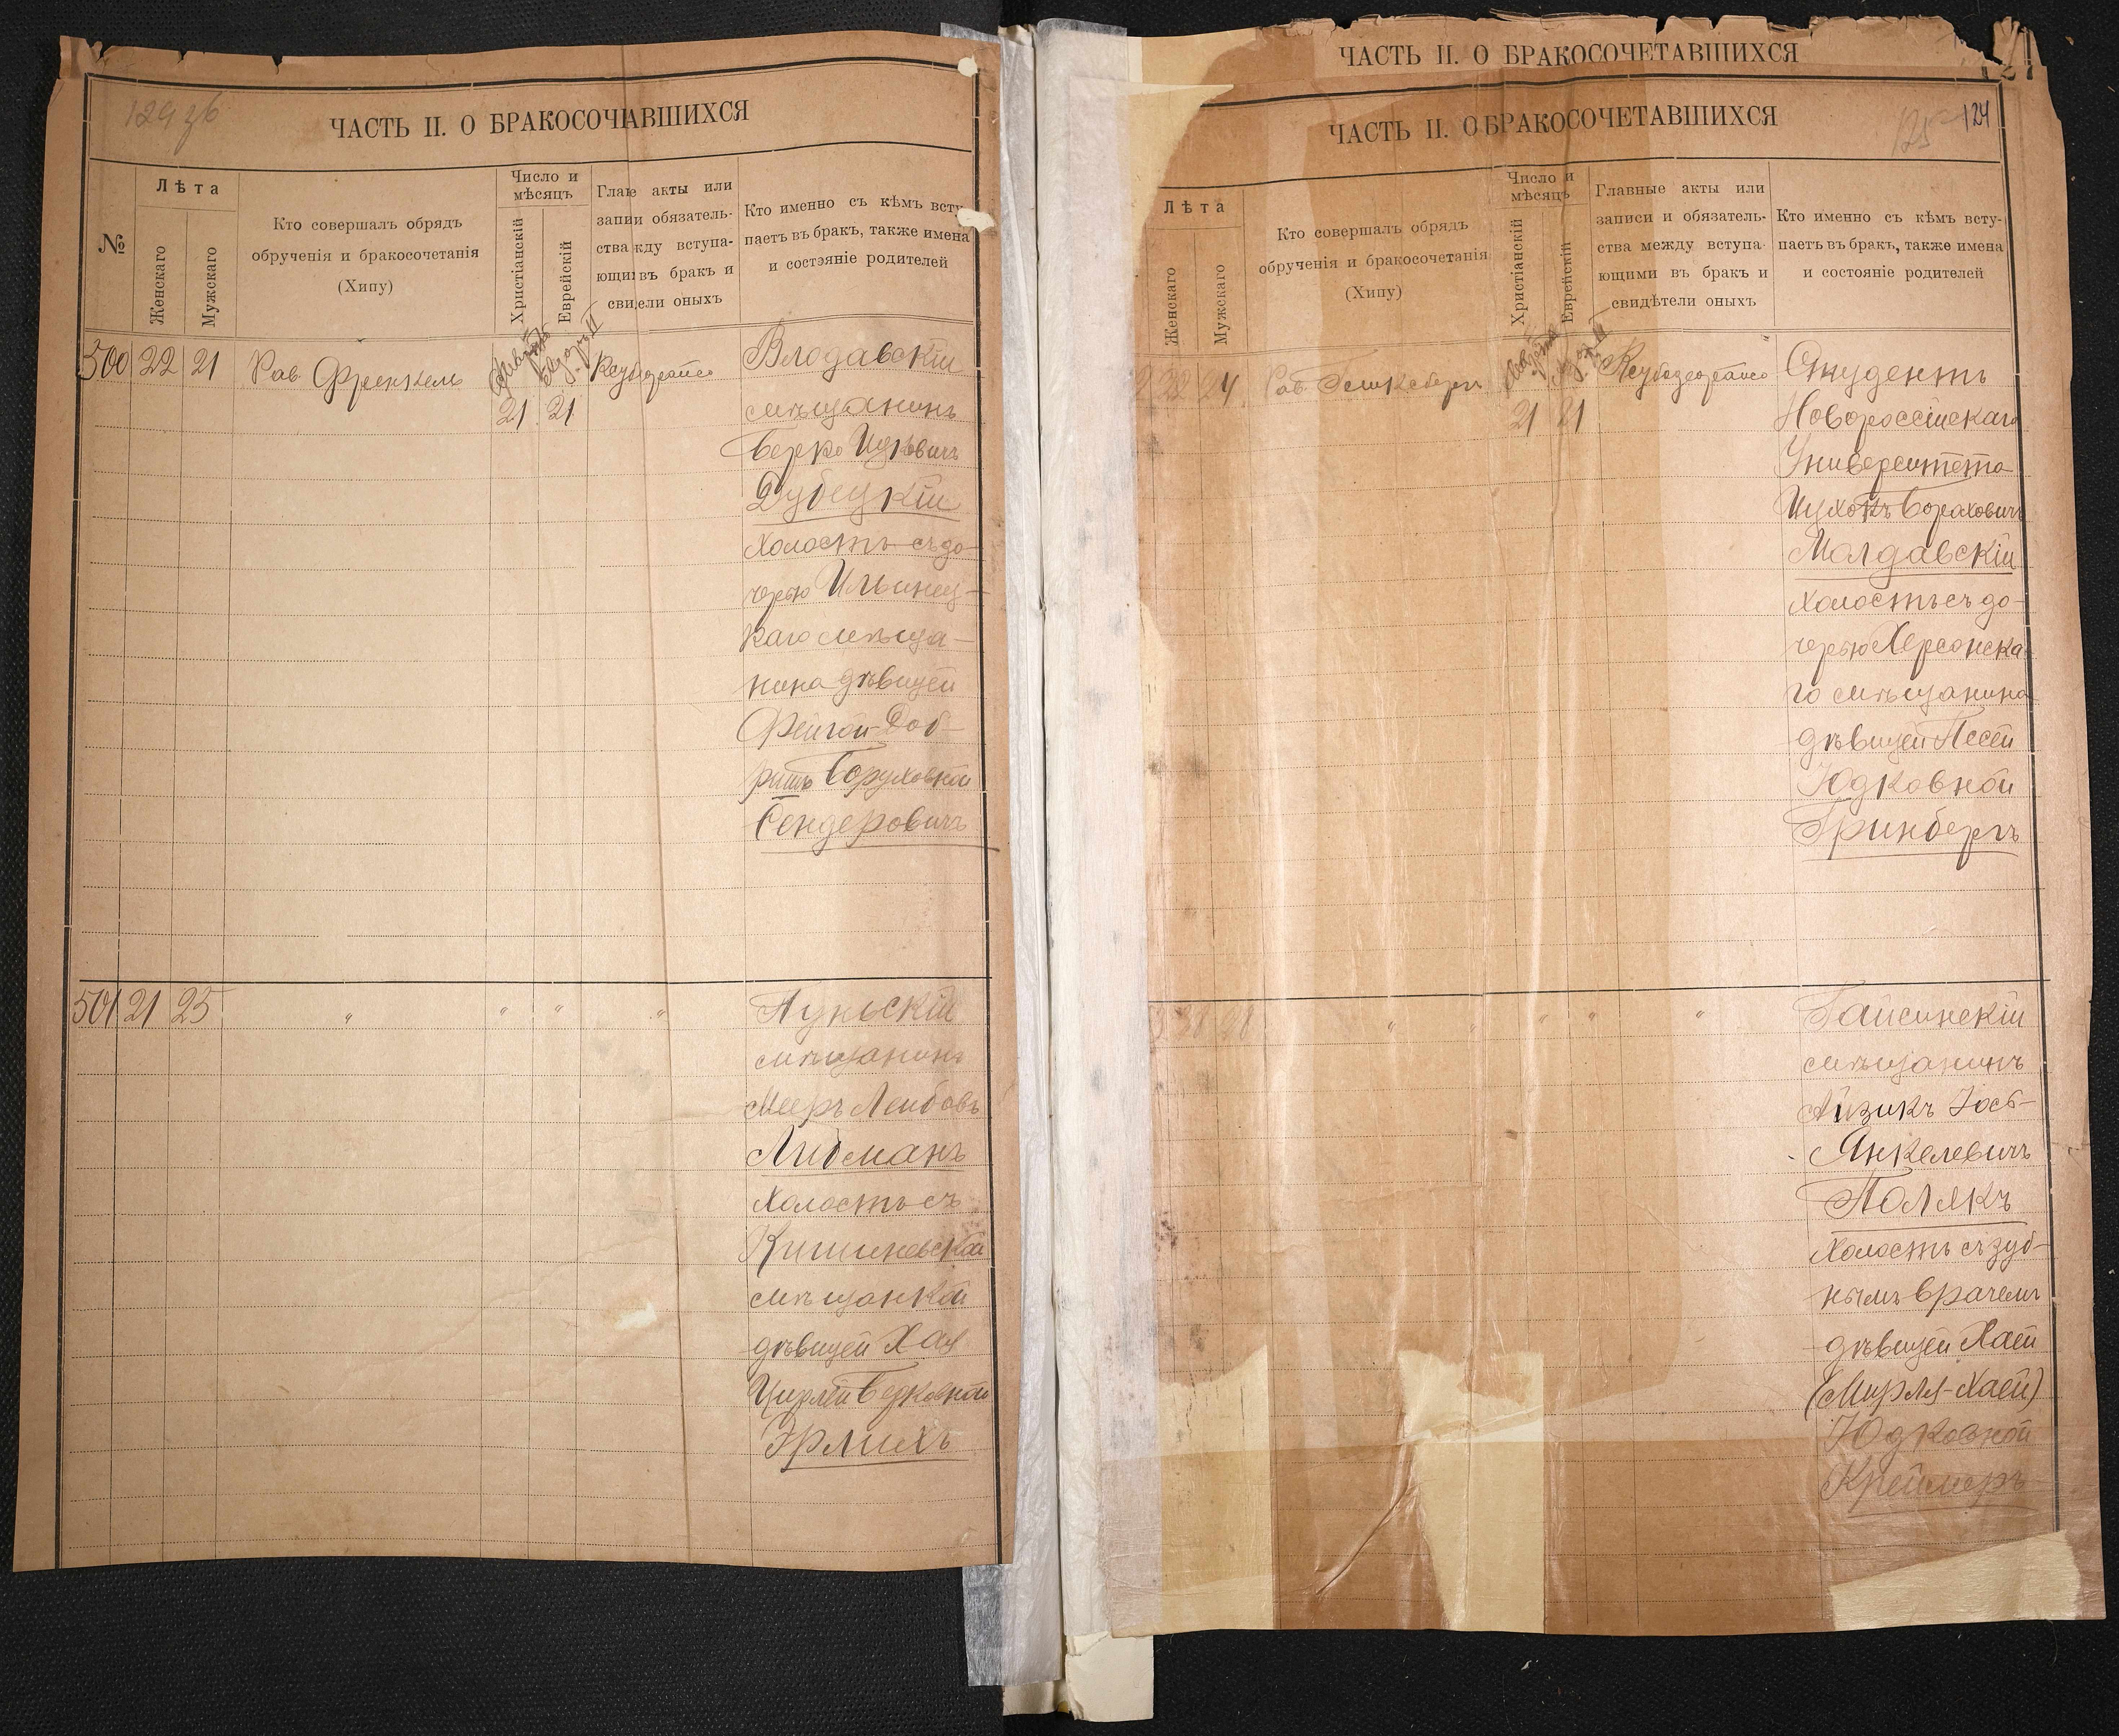 ЧАСТЬ II. О БРАКОСОЧАВШИХСЯ
№
Лѣта
Женскаго
Мужскаго
Кто совершалъ обрядъ
обрученія и бракосочетанія
(Хипу)
Число и
мѣсяцъ
Христіанскій
Еврейскій
Глаıе акты или
запии обязатель-
ства жду вступа-
ющи въ бракъ и
свиıели оныхъ
Кто именно съ кѣмъ всту-
паетъ въ бракъ, также имена
и состояніе родителей
500 22 21 Рав. Френкель
21 21
Влодавскій
мѣщанинъ
Берко Ицковичъ
Дубецкій
холостъ съ до-
черью Ильинец-
каго мѣща-
нина дѣвицей
Фейгой-Доб-
ришъ Боруховной
Сендеровичъ
501 21 25 " " " "
Луньскій
мѣщанинъ
Мееръ Лейбовъ
Либманъ
холостъ съ
Кишиневской
мѣщанкой
дѣвицей Хая
Цирлей Берковной
Эрлихъ
ЧАСТЬ II. О БРАКОСОЧЕТАВШИХСЯ
ЧАСТЬ II. О БРАКОСОЧЕТАВШИХСЯ
125 124
Лѣта
Женскаго
Мужскаго
Кто совершалъ обрядъ
обрученія и бракосочетанія
(Хипу)
Число и
мѣсяцъ
Христіанскій
Еврейскій
Главные акты или
записи и обязатель-
ства между вступа-
ющими въ бракъ и
свидѣтели оныхъ
Кто именно съ кѣмъ всту-
паетъ въ бракъ, также имена
и состояніе родителей
2 22 24 Рав.
21 21
Студентъ
Новороссійскаго
Университета
Ицхокъ Бораховичъ
Молдавскій
холостъ съ до-
черью Херсонска-
го мѣщанина
дѣвицей Песей
Юдковной
Гринбергъ
" " " " "
Гайсинскій
мѣщанинъ
Айзикъ Іось-
Янкелевичъ
Полякъ
холостъ съ зуб-
нымъ врачемъ
дѣвицей Хаей
(Мирля-Хаей)
Юдковной
Креймеръ